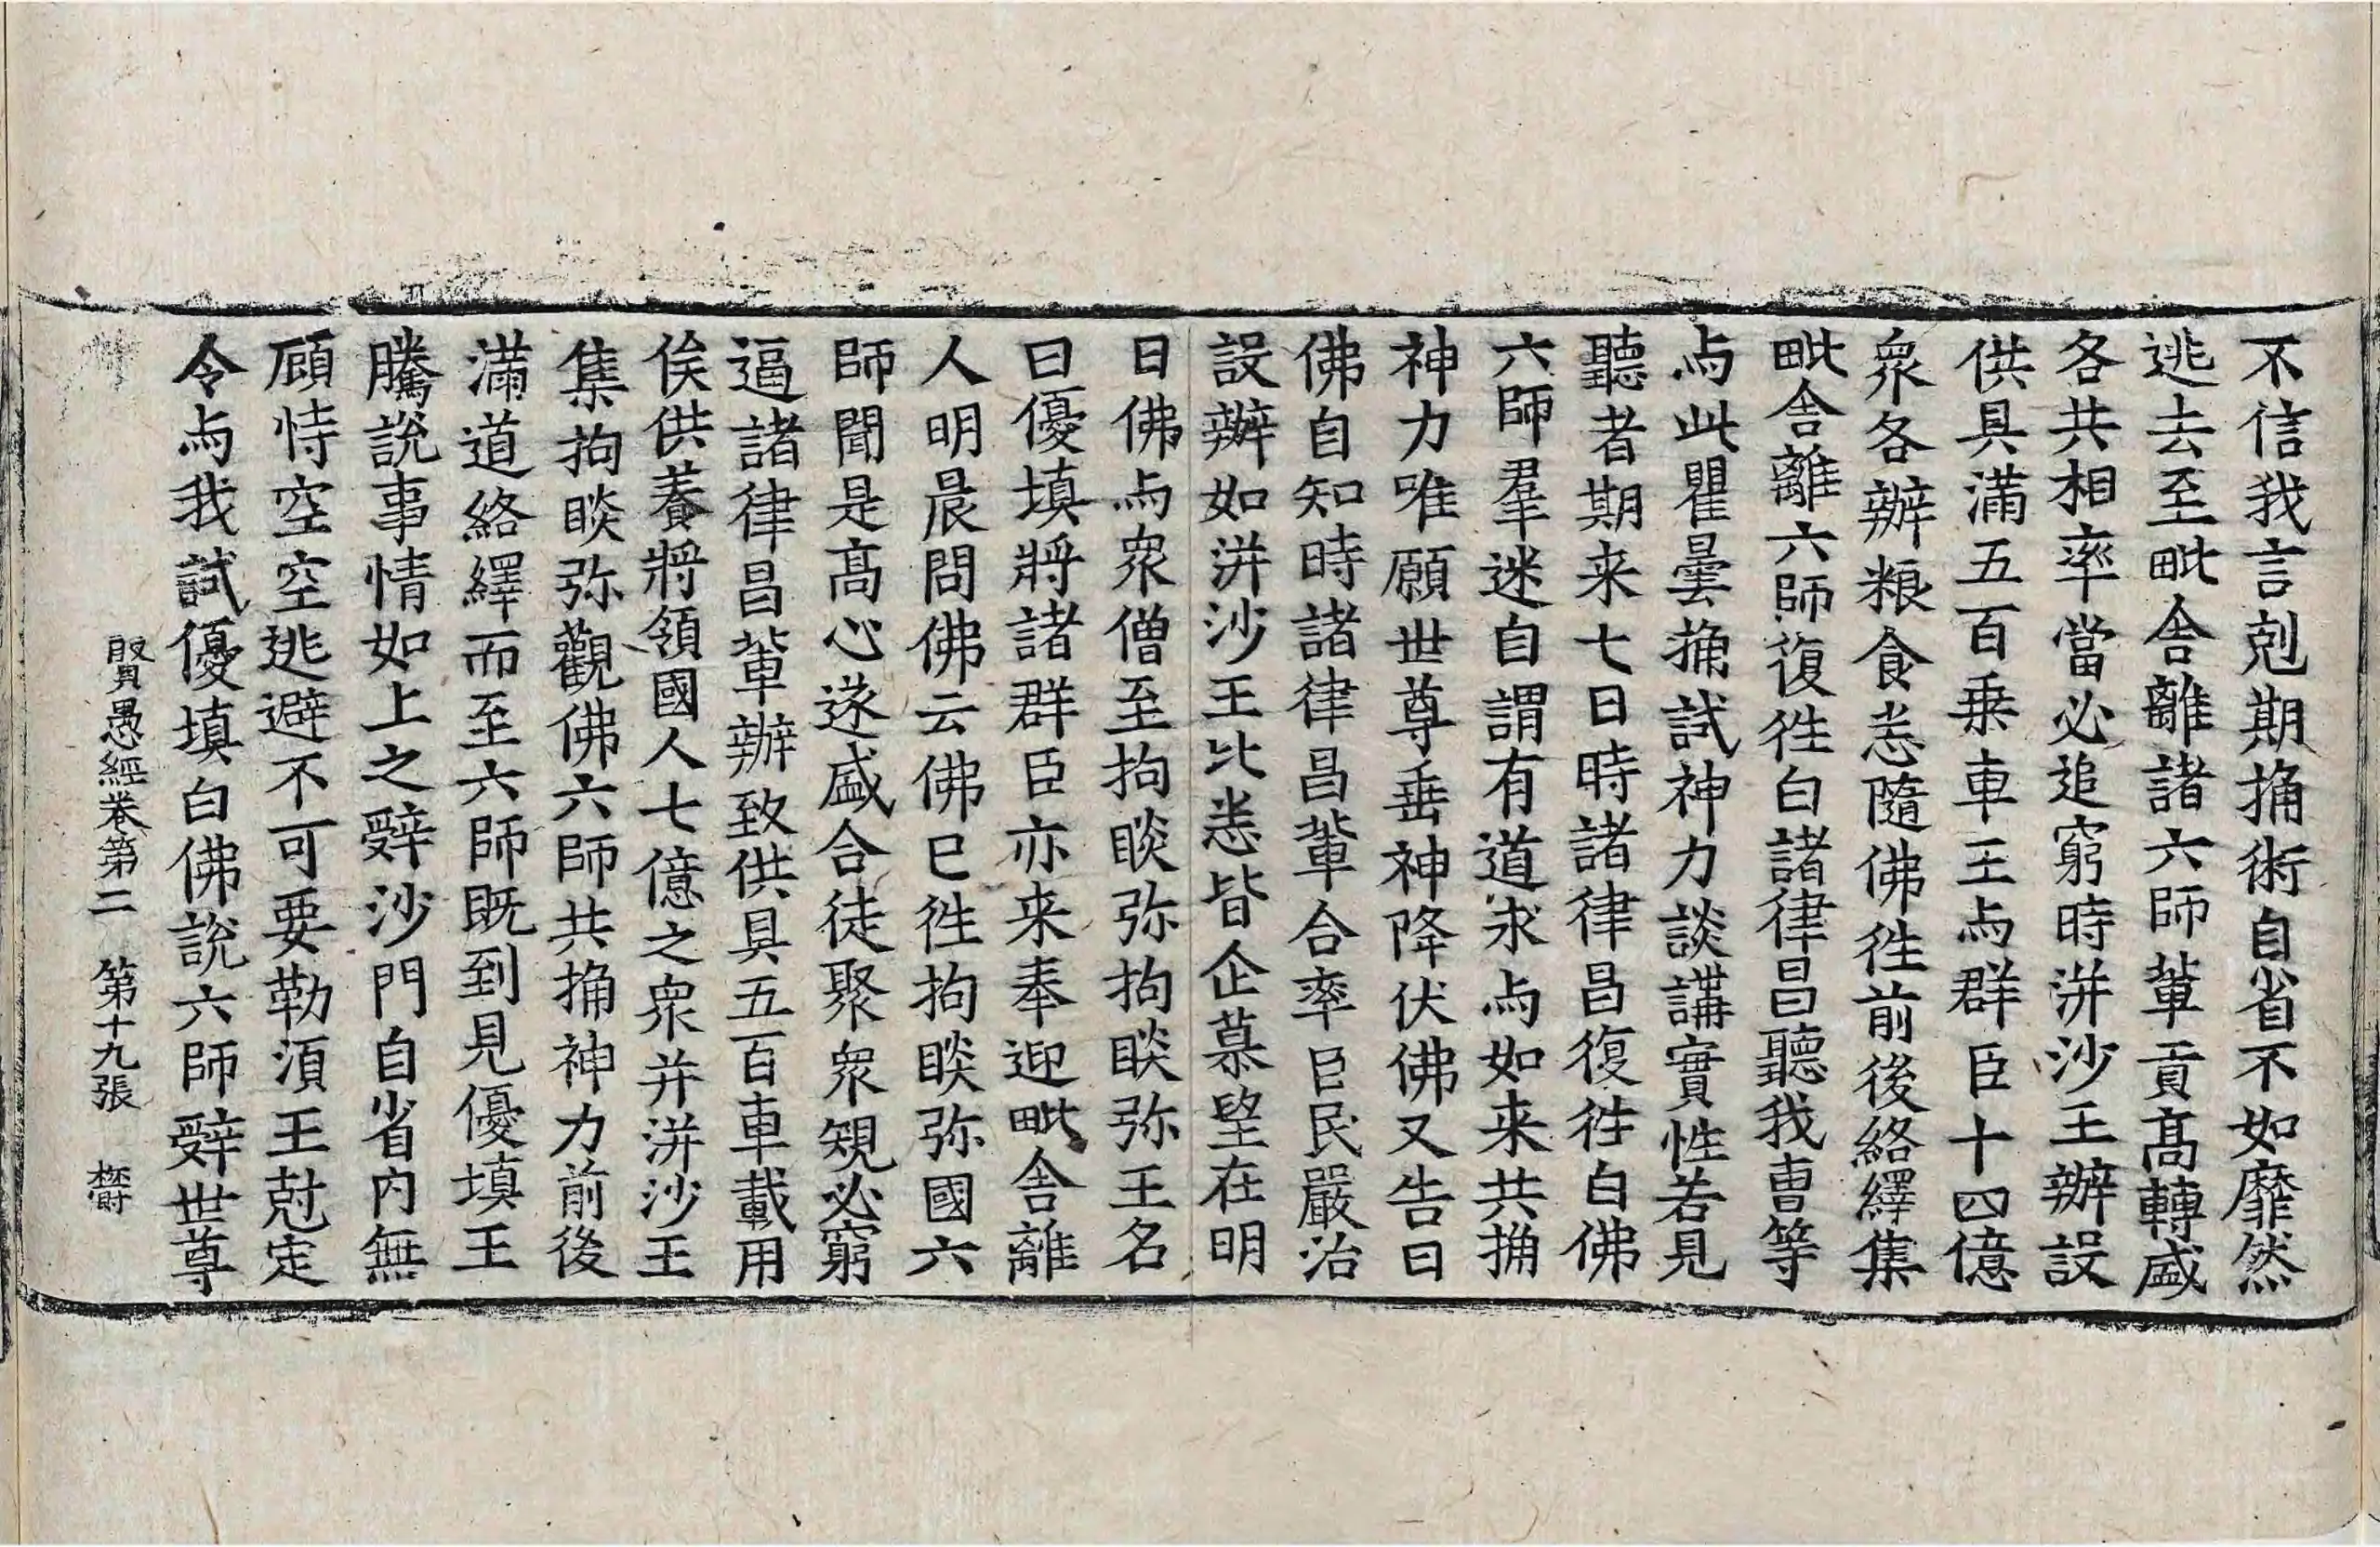 不信我言剋期捔術自省不如靡然
逃去至毗舍離諸六師輩貢髙轉盛
各共相率當必追窮時洴沙王辦設
供具滿五百乗車王与群臣十四億
衆各辦粮食恙隨佛徃前後絡繹集
毗舍離六師復徃白諸律昌聽我曺等
与此瞿曇捔試神力談講實性若見
聽者期来七日時諸律昌復徃白佛
六師羣迷自謂有道求与如来共捔
神力唯願世尊垂神降伏佛又告曰
佛自知時諸律昌輩合率臣民嚴治
設辦如洴沙王比恙皆企慕望在明
日佛与衆僧至拘睒弥拘睒弥王名
曰優填將諸群臣亦来奉迎毗舍離
人明晨問佛云佛已徃拘睒弥國六
師聞是髙心遂盛合徒聚衆䂓必窮
逼諸律昌輩辦致供具五百車載用
俟供養將領國人七億之衆并洴沙王
集拘睒弥觀佛六師共捔神力前後
滿道絡繹而至六師既到見優填王
騰說事情如上之辤沙門自省内無
顧恃空空逃避不可要勒湏王尅定
令与我試優填白佛說六師辤世尊
賢愚經卷第二　第十九張　欝